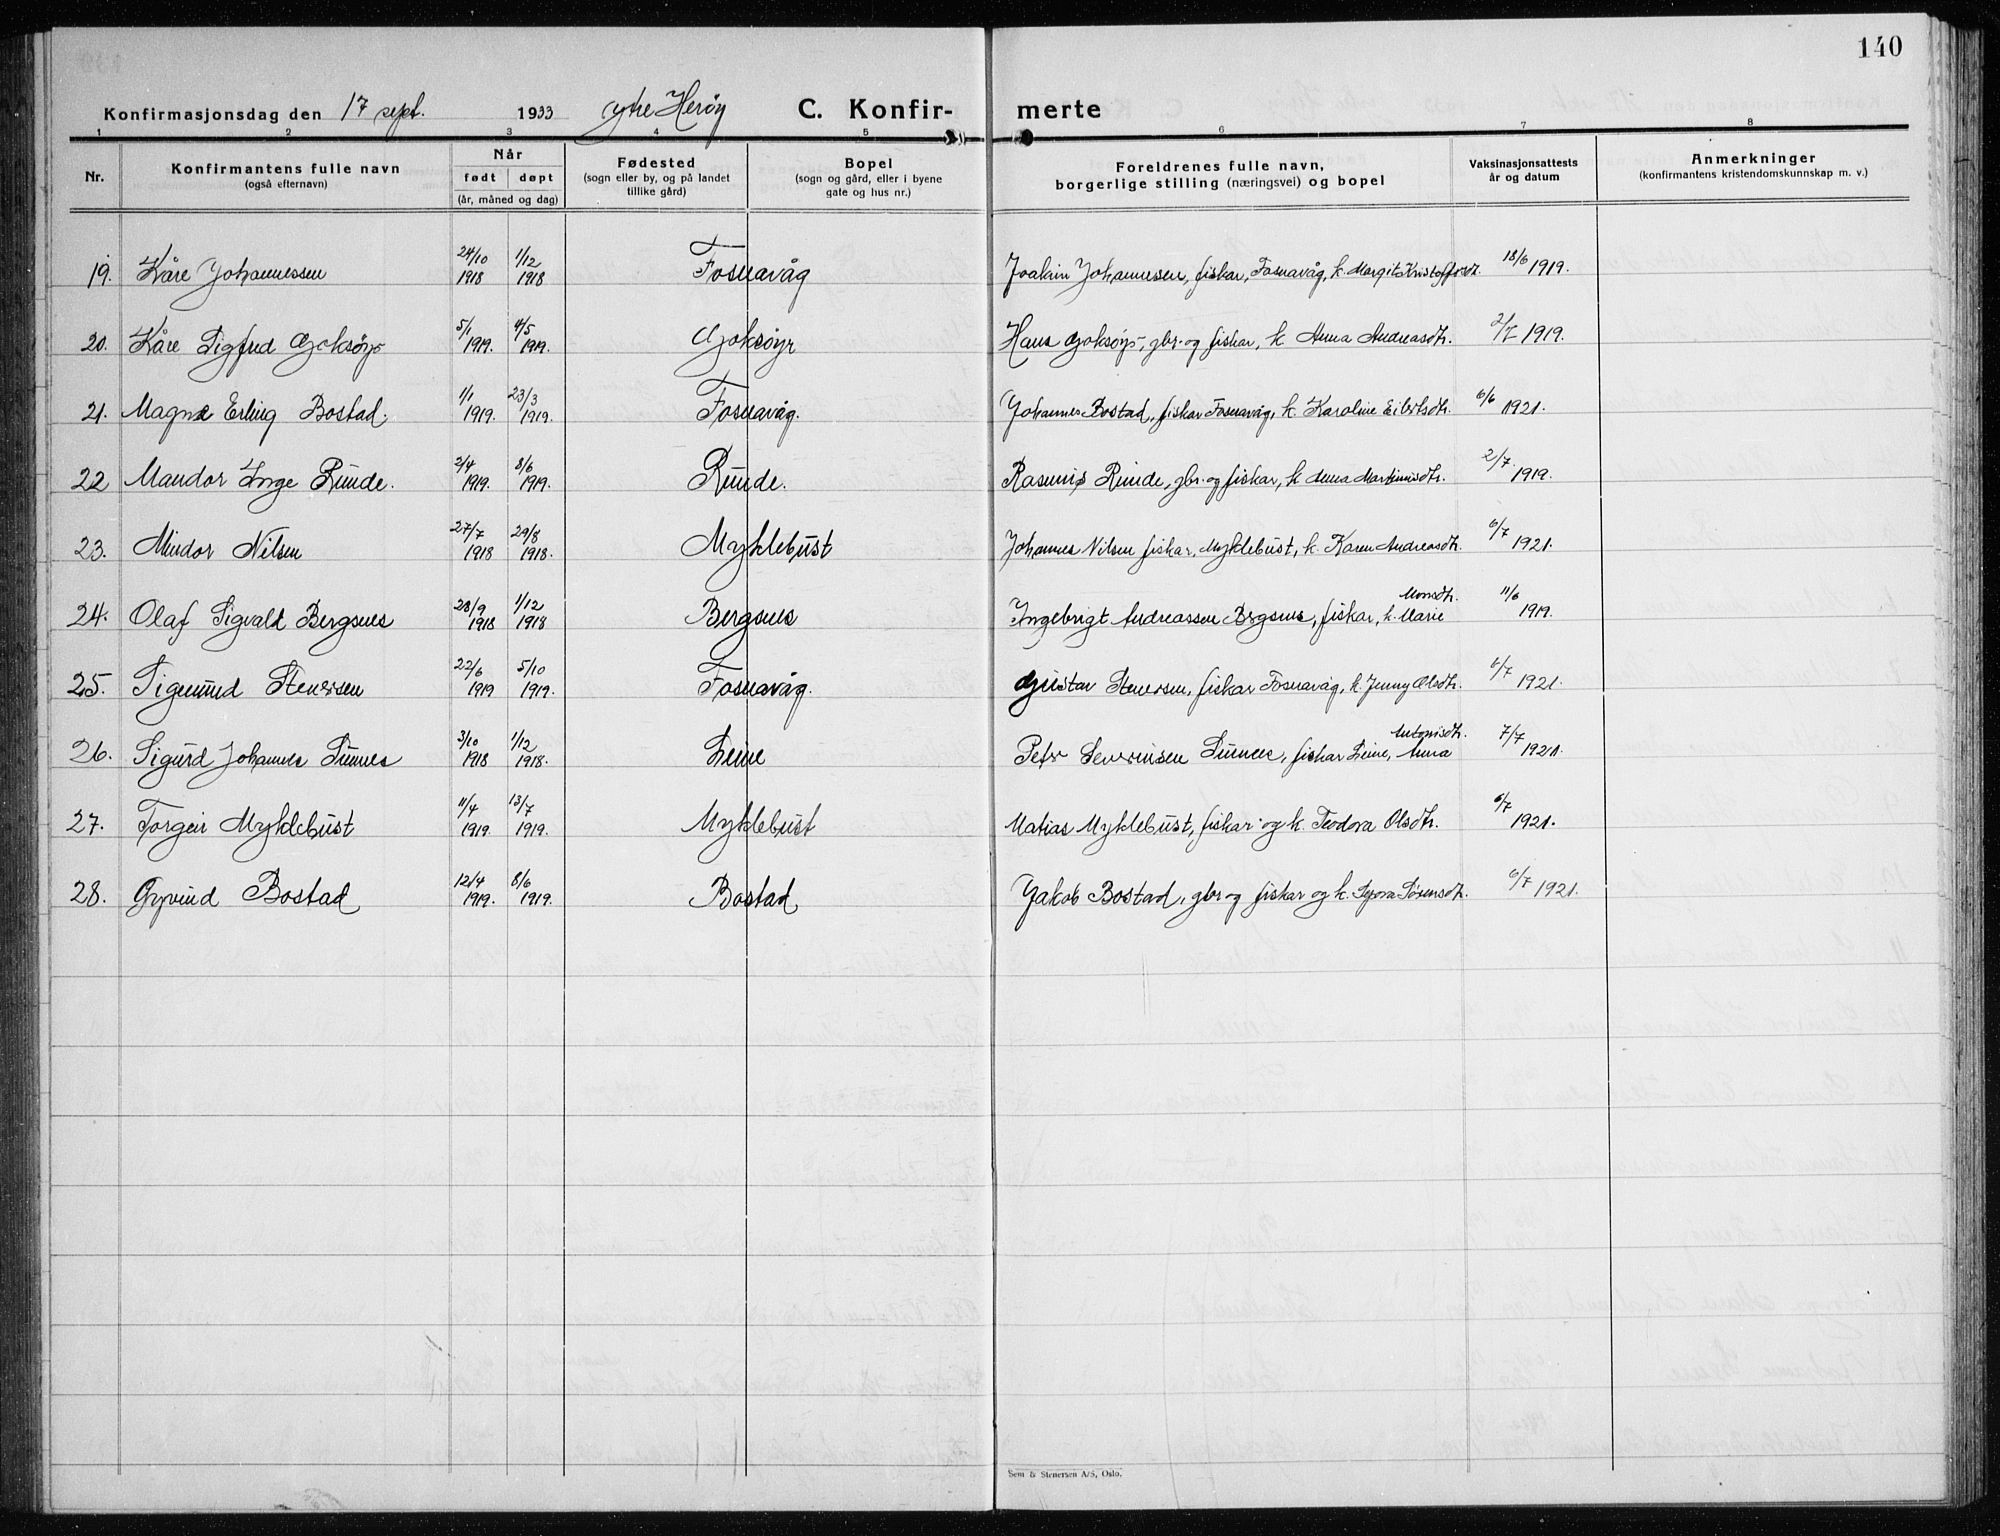 140
Konfirmasjonsdag den 17 sept. 1933 ytre Herøy C. Konfir- merte
1 2 3 4 5 6 7 8
Nr. Konfirmantens fulle navn (også efternavn) Når født døpt (år, måned og dag) Fødested (sogn eller by, og på landet tillike gård) Bopel (sogn og gård, eller i byene gate og hus nr.) Foreldrenes fulle navn, borgerlige stilling (næringsvei) og bopel Vaksinasjonsattests år og datum Anmerkninger (konfirmantens kristendomskunnskap m. v.)
19. Kåre Johannessen 24/10 1918 1/12 1918 Fosnavåg Joakim Johannesen, fiskar, Fosnavåg, k. Margit Kristoffersdt. 18/6 1919.
20. Kåre Sigfred Goksøyr 5/1 1919. 4/5 1919. Goksøyr Hans Goksøyr, gbr. og fiskar, k. Anna Andreasdt. 2/7 1919.
21. Magne Erling Bostad. 1/1 1919. 23/3 1919. Fosnavåg. Johannes Bostad, fiskar Fosnavåg, k. Karoline Eibertsdt. 6/6 1921.
22 Mandor Inge Runde. 2/4 1919. 8/6 1919. Runde. Rasmus Runde, gbr. og fiskar, k. Anna Martinusdt. 2/7 1919.
23. Mindor Nilsen 27/7 1918 29/8 1918. Myklebust Johannes Nilsen fiskar, Myklebust, k. Karen Andreasdt. 6/7 1921.
24. Olaf Sigvald Bergsnes 28/9 1918 1/12 1918 Bergsnes Ingebrigt Andreassen Brgsnes, fiskar, k. Marie Monsdt. 11/6 1919.
25. Sigmund Stenersen 22/6 1919 5/10 1919. Fosnavåg. Gustav Stenersen, fiskar Fosnavåg, k. Jenny Olsdt. 6/7 1921.
26. Sigurd Johannes Sunnes 3/10 1918 1/12 1918. Leine Peter Severinsen Sunnes, fiskar Leine, Anna Antonisdt. 7/7 1921.
27. Torgeir Myklebust 11/4 1919. 13/7 1919. Myklebust Matias Myklebust, fiskar og k. Teodora Olsdt. 6/7 1921.
28. Øyvind Bostad 12/4 1919. 8/6 1919. Bostad Jakob Bostad, gbr og fiskar og k. Sørensdt. 6/7 1921.
Sem & Stenersen A/S, Oslo.